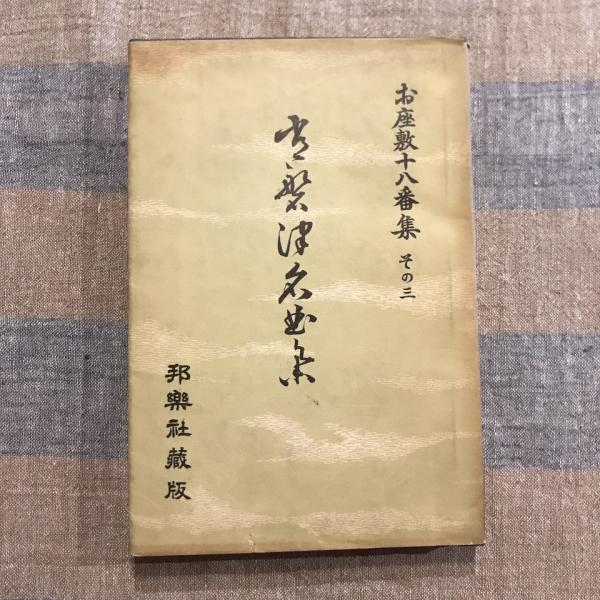 お座敷十八番集 その三
常磐津名曲集
邦樂社藏版